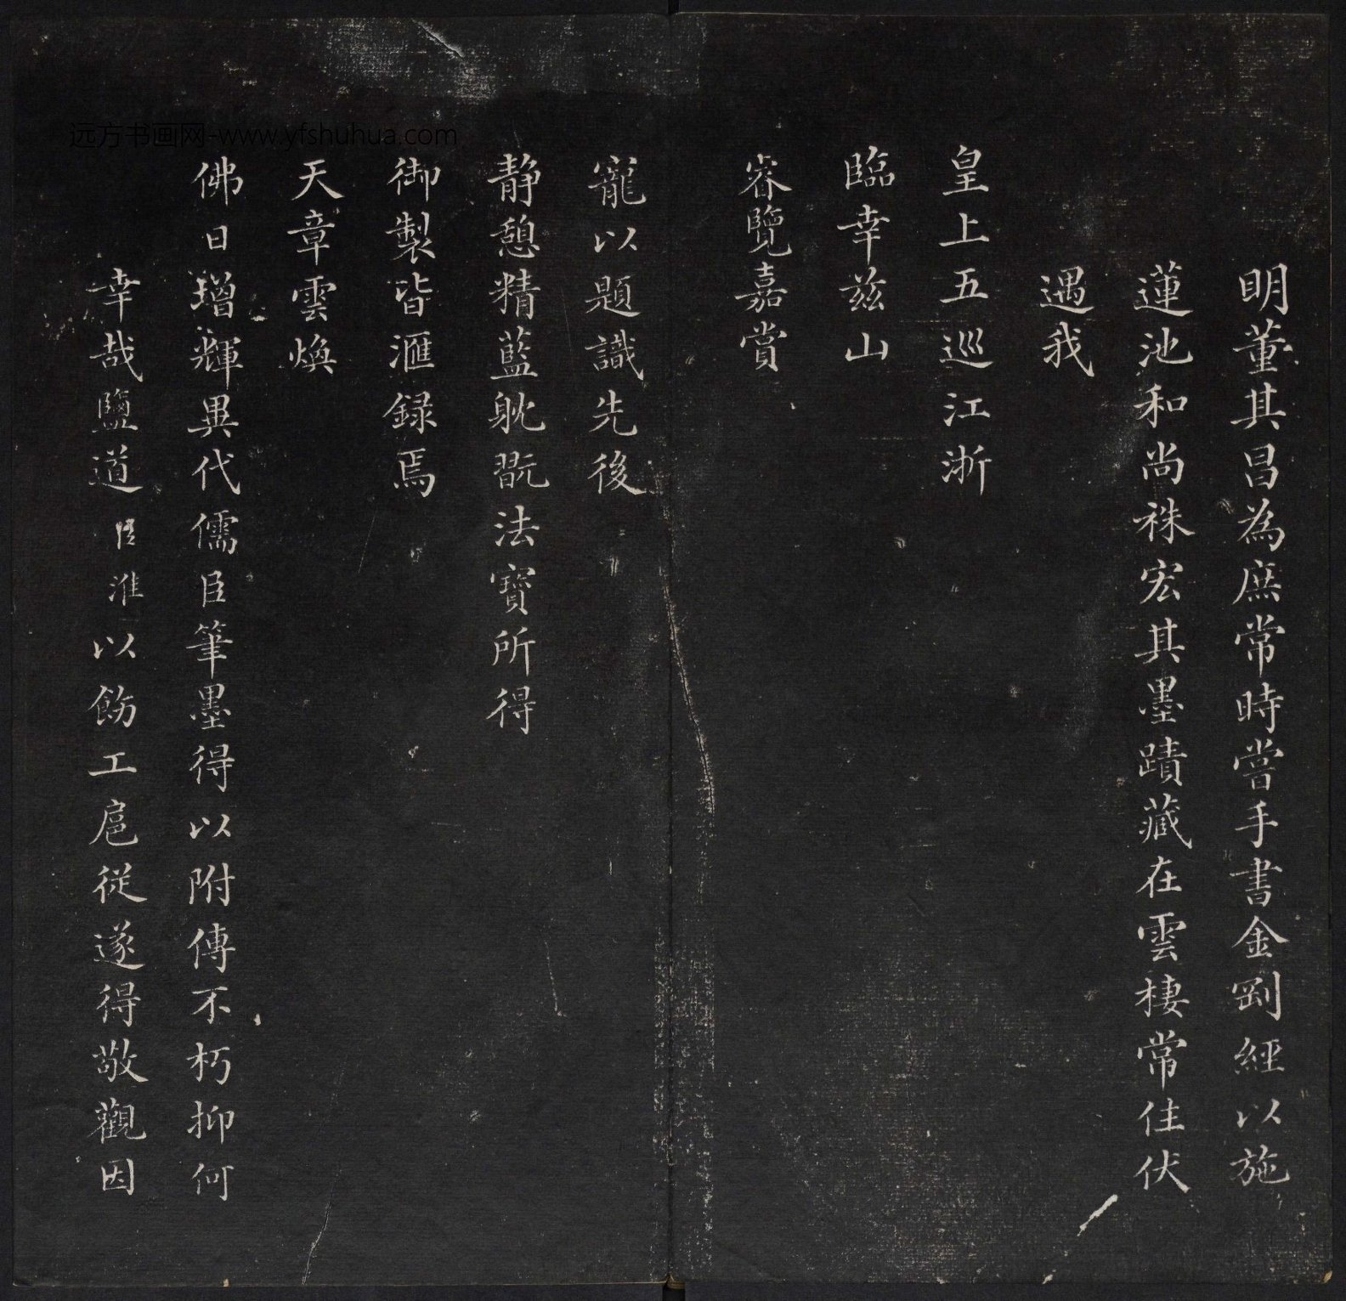 明董其昌為庶常時嘗手書金剛經以施
蓮池和尚祩宏其墨蹟藏在雲棲常住伏
遇我
皇上五巡江浙
臨幸兹山
睿覽嘉賞
寵以題識先後
靜憩精藍躭翫法寶所得
御製皆滙録焉
天章雲煥
佛日增輝異代儒臣筆墨得以附傳不朽抑何
幸哉鹽道臣淮以飭工扈從遂得敬觀因
远方书画网-www.yfshuhua.com